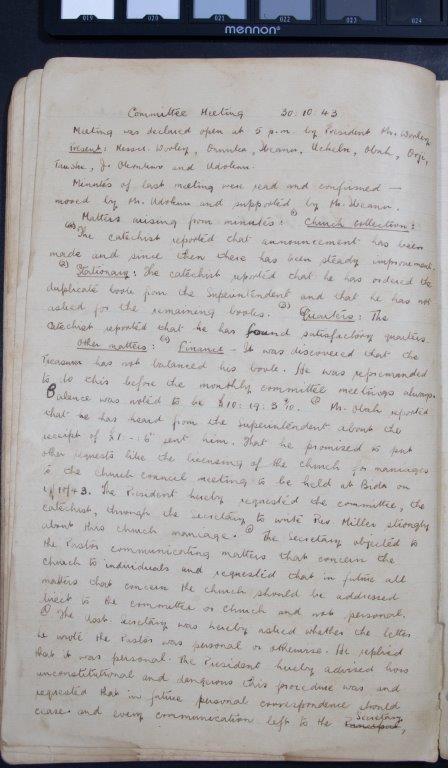 019 020 021 022 023 024
mennon®
Committee Meeting 30:10:43
Meeting was declared open at 5 p.m. by President Mr. Worley
Present: Messrs. Worley, Onunka, Ibeanu, Uchelu, Obah, Orji,
J. Okonkwo and Udokwu.
Minutes of last meeting were read and confirmed —
moved by Mr. Udokwu and supported by Mr. Ibeanu.
Matters arising from minutes: (1) Church collection:
The catechist reported that announcement has been
made and since then there has been steady improvement.
(2) Stationary: The catechist reported that he has ordered the
duplicate book from the Superintendent and that he has not
asked for the remaining books. (3) Quarters: The
Catechist reported that he has found satisfactory quarters.
Other matters: Finance - It was discovered that the
Treasurer has not balanced his book. He was reprimanded
to do this before the monthly committee meetings always.
Balance was noted to be £10:19:3
Mr. Obah reported
that he has heard from the Superintendent about the
receipt of £1 -:6 sent him. That he promised to put
other requests like the licensing of the church for marriages
to the Church Council meeting to be held at Bida on
The President hereby requested the committee, the
catechist, through the secretary to write Rev. Miller strongly
about this church marriage. The Secretary objected to
the Pastor communicating matters that concern the
church to individuals and requested that in future all
matters that concern the church should be addressed
direct to the committee or church and not personal.
The Secretary was hereby asked whether the letter
he wrote the Pastor was personal or otherwise. He replied
that it was personal. The President hereby advised how
unconstitutional and dangerous this procedure was and
requested that in future personal correspondence should
cease and every communication left to the Secretary,